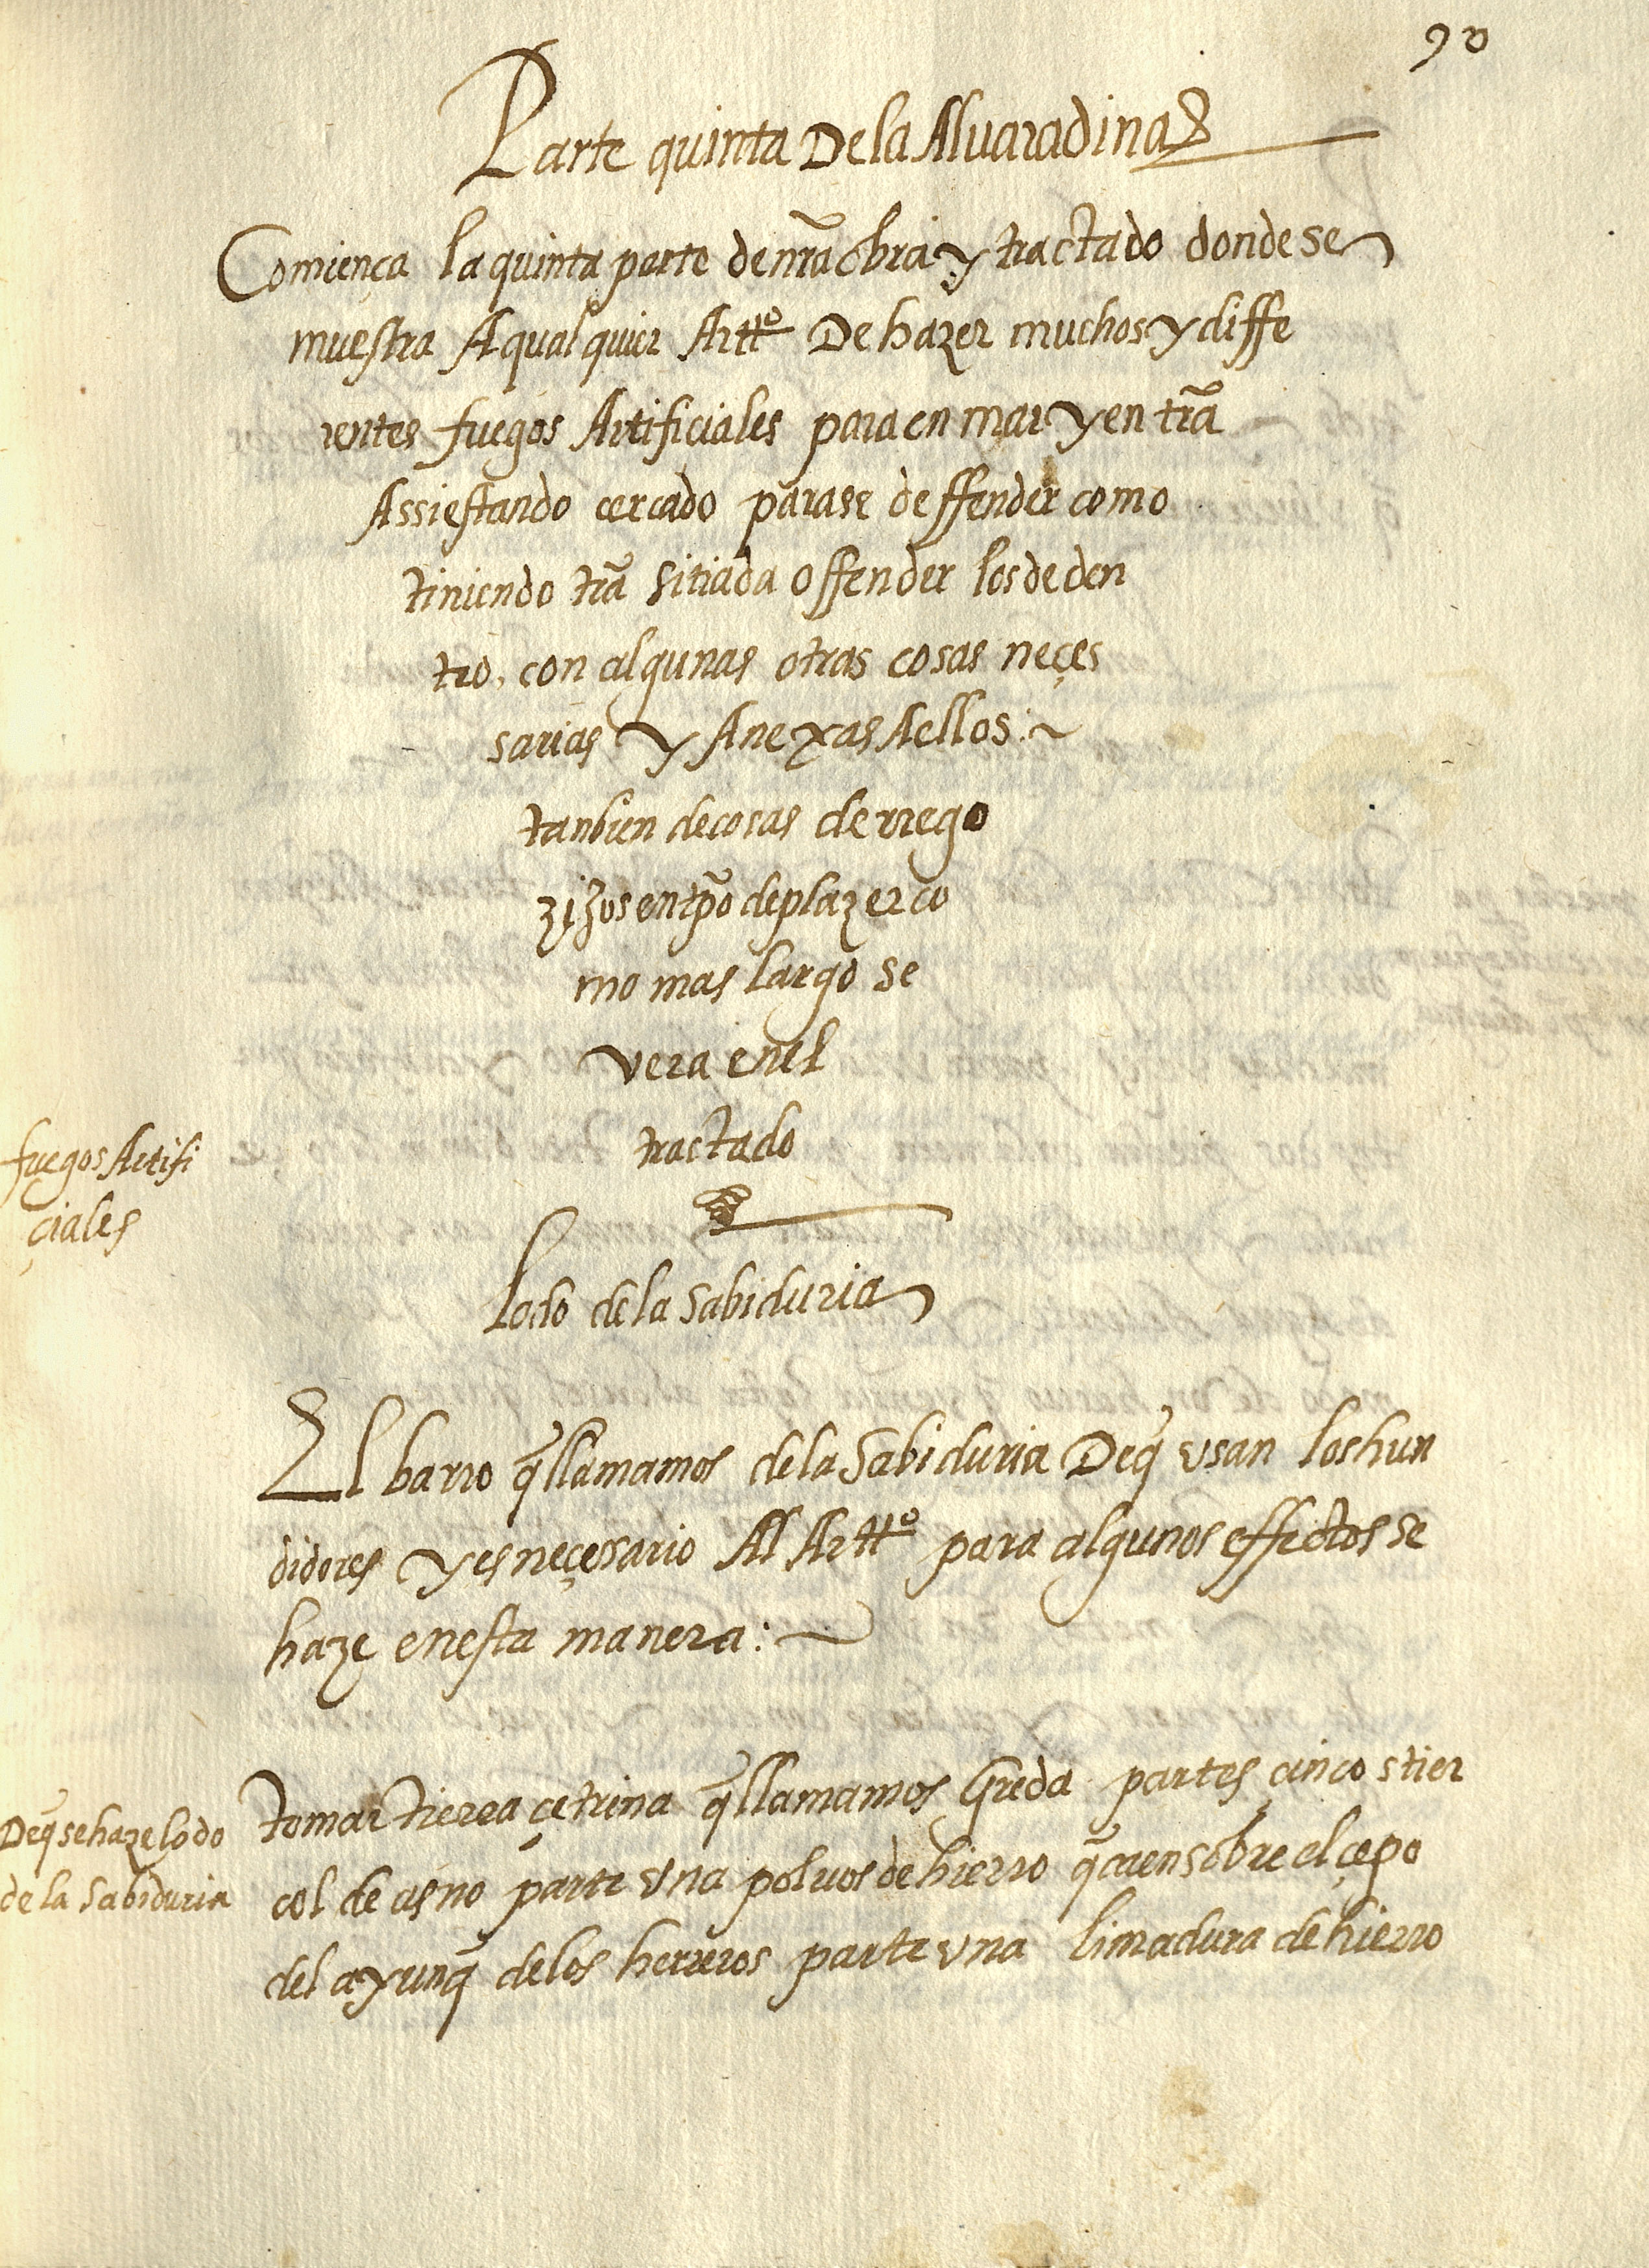 90
Parte quinta De la Aluaradina
Comiença la quinta parte de nr̃a obra y tractado donde se
muestra A qualquier Artᵗᵒ De hazer muchos y diffe
rentes fuegos Artificiales para en mar y en tr̃a
Assi estando cercado para se deffender como
tiniendo tr̃a sitiada offender los de den
tro, con algunas otras cosas neçes
sarias y Anexas A ellos:~
tanbien de cosas de rrego
zijos en tp̃o de plazer co
mo mas largo se
vera en el
tractado
fuegos Artifi
çiales
Lodo de la Sabiduria
El barro q̃ llamamos de la Sabiduria De q̃ vsan los hun
didores y es neçesario Al Artᵗᵒ para algunos effectos se
haze en esta manera:~
De q̃ se haze lodo
de la Sabiduria
tomar tierra çetrina q̃ llamamos Greda partes çinco stier
col de asno parte vna poluos de hierro q̃ caen sobre el çepo
del ayunq̃ de los herreros parte vna limadura de hierro